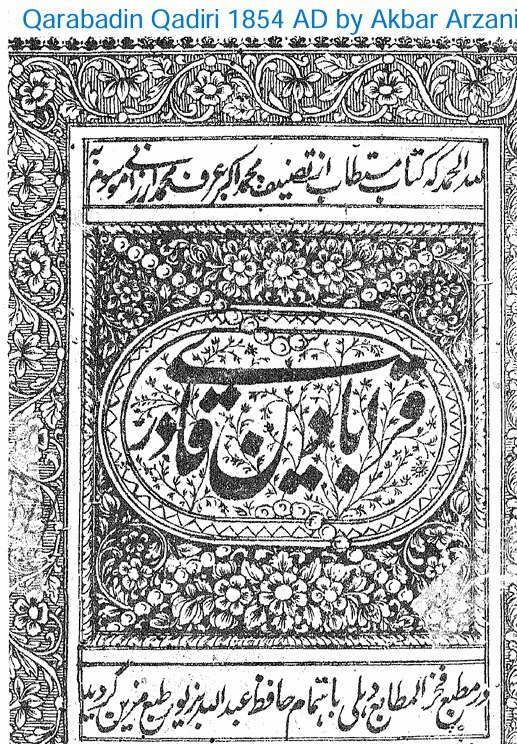 Qarabadin Qadiri 1854 AD by Akbar Arzani
لله الحمد که کتاب مستطاب از تصنیف محمد اکبر عرف محمد ارزانی موسوم به
قرابادین قادری
در مطبع فخر المطابع دهلی باهتمام حافظ عبد الله بزیور طبع مزین گردید